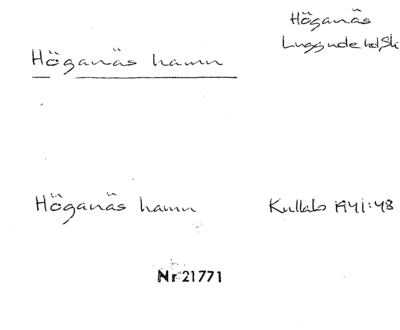 Höganäs
Luggude hd, Sk
Höganäs hamn
Höganäs hamn
Kullabo 1941:48
Nr 21771